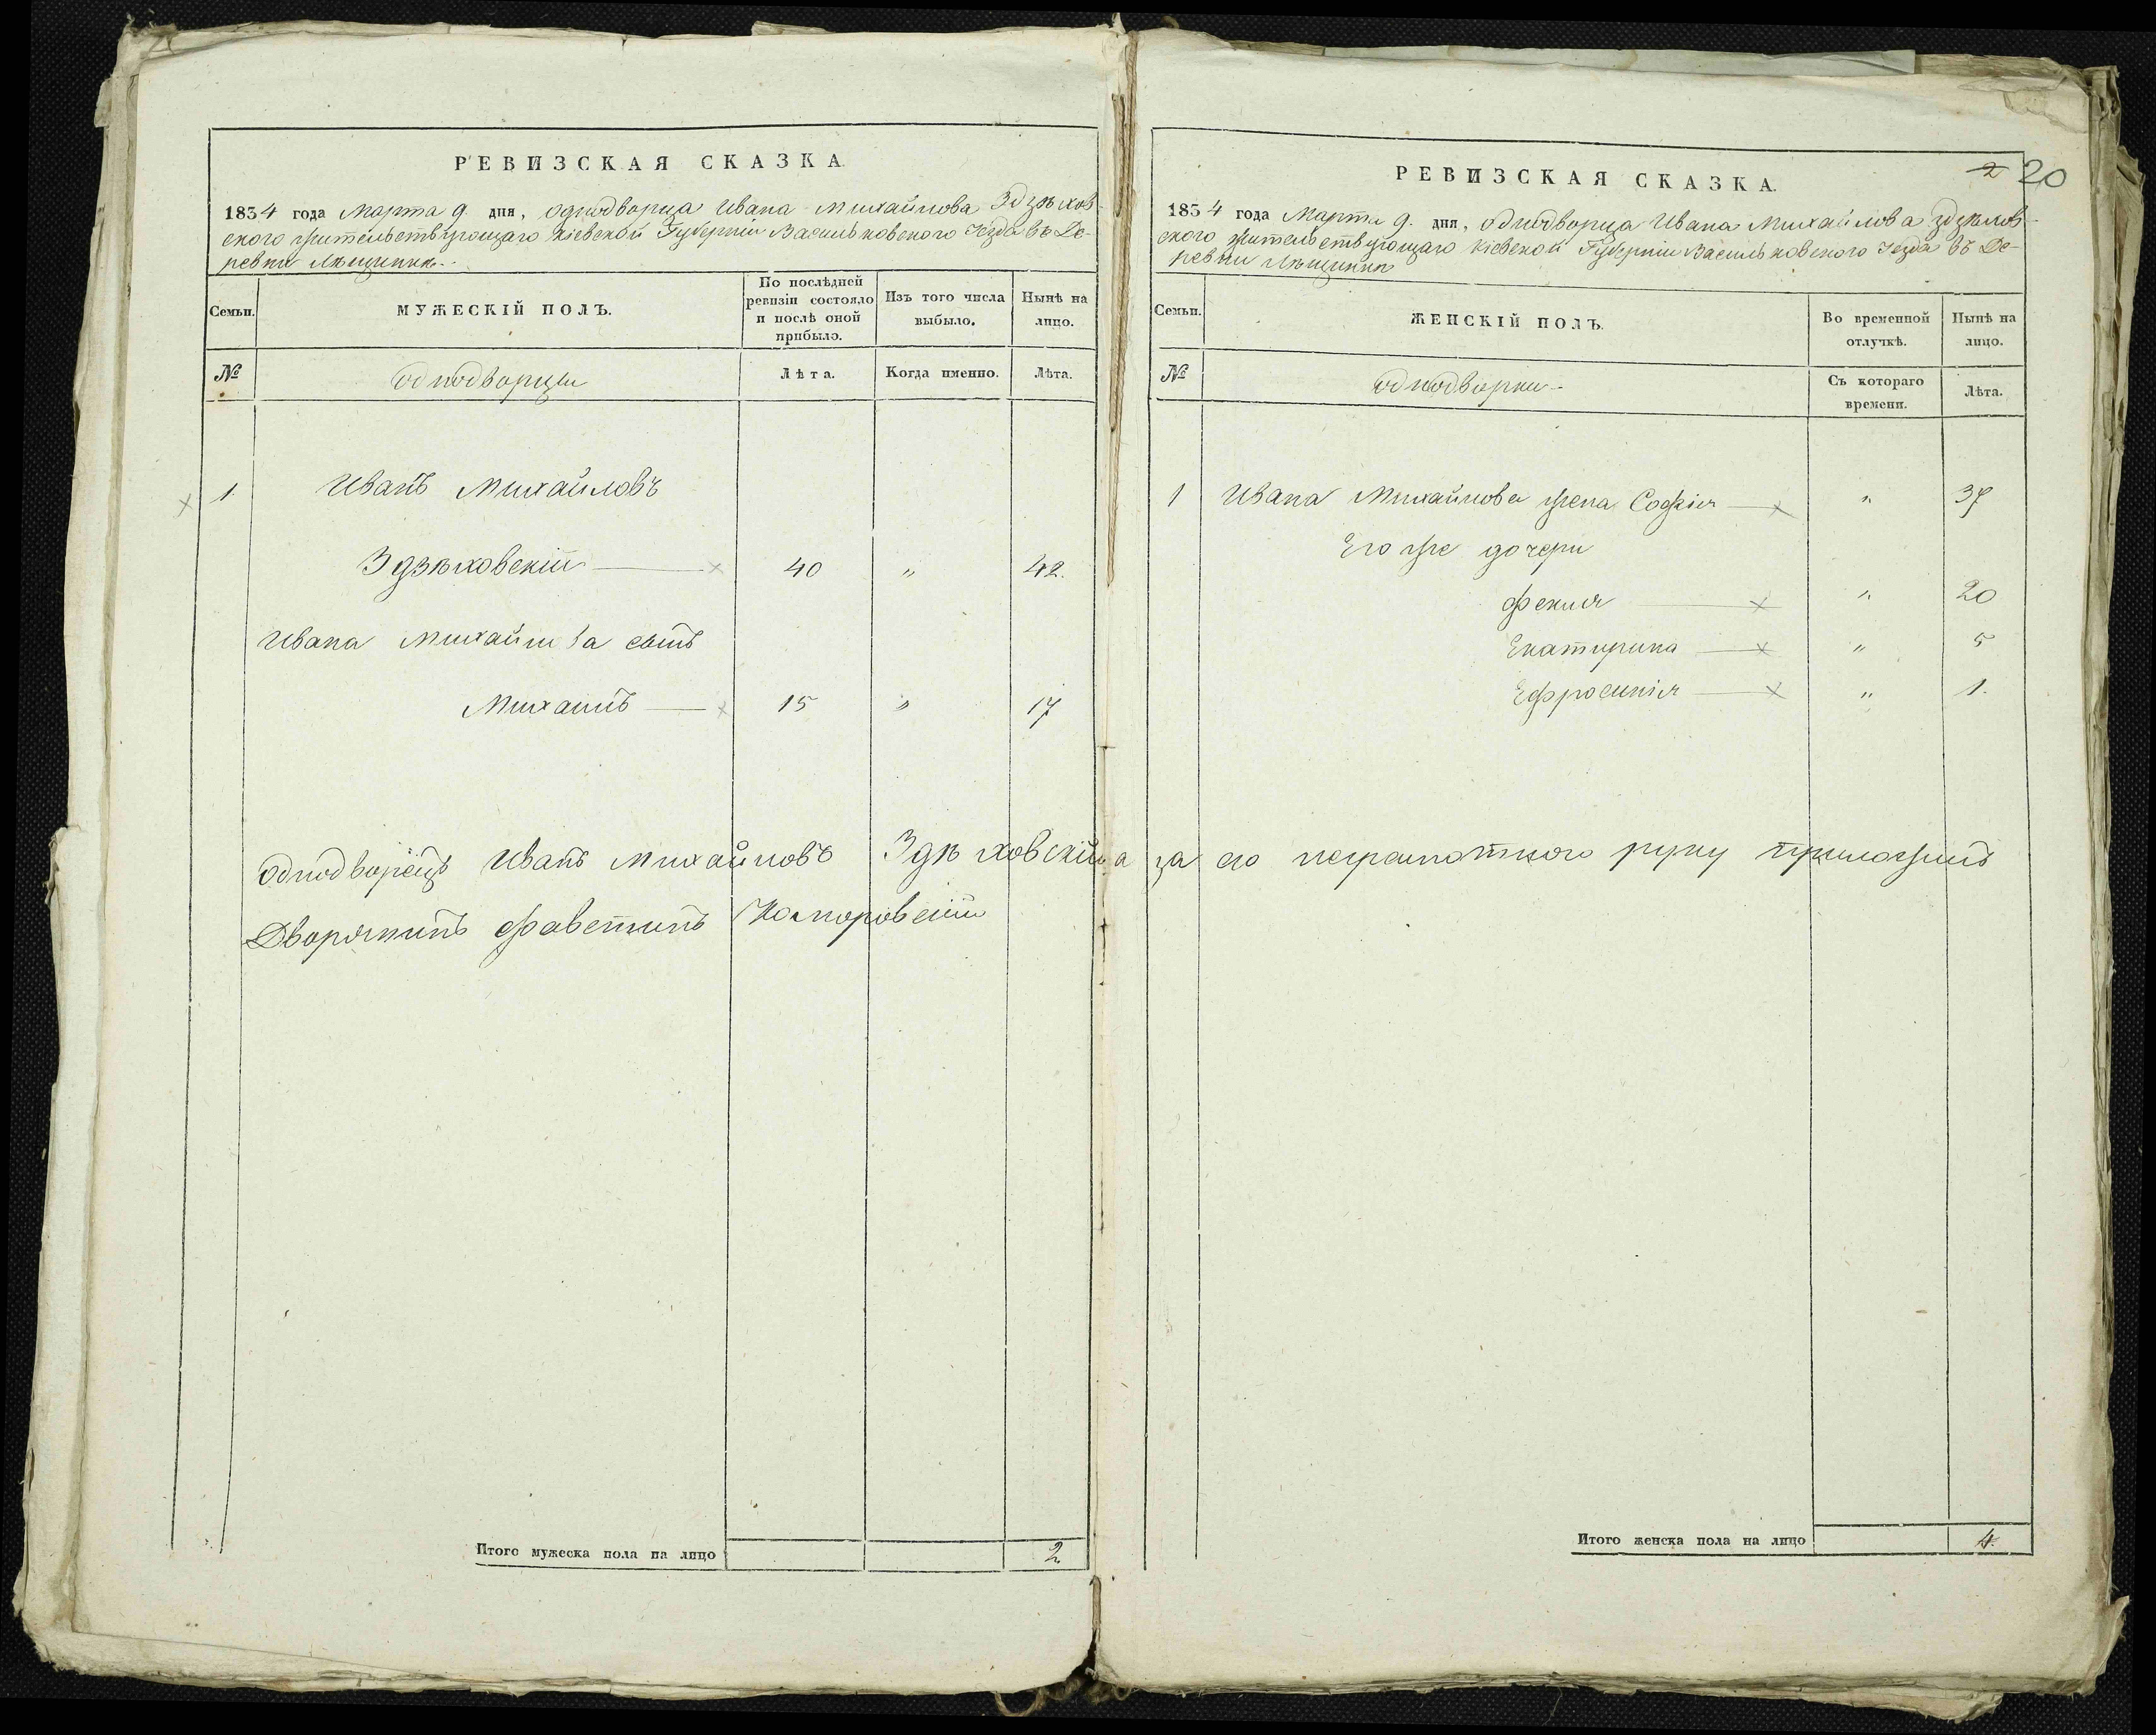 РЕВИЗСКАЯ СКАЗКА.
1834 года Марта 9. дня, однодворца Ивана Михайлова Здзѣхов-
ского жительствующаго Кіевской Губерніи Васильковского Уезда въ Де-
ревни
Семьи.
МУЖЕСКІЙ ПОЛЪ.
По послѣдней ревизіи состояло и послѣ оной прибыло.
Изъ того числа выбыло.
Нынѣ на лицо.
№
однодворцы
Лѣта.
Когда именно.
Лѣта.
1. Иванъ Михайловъ
Здзѣховскій 40 „ 42.
Ивана Михайлова сынъ
Михаилъ 15 „ 17
Однодворецъ Иванъ Михайловъ Здѣховскій а за его неграмотного руку приложилъ
Дворянинъ
Итого мужеска пола на лицо 2
2 20
РЕВИЗСКАЯ СКАЗКА.
1834 года Марта 9. дня, однодворца Ивана Михайлова Здзѣхов-
ского жительствующаго Кіевской Губерніи Васильковского Уезда въ Де-
ревни
Семьи.
ЖЕНСКІЙ ПОЛЪ.
Во временной отлучкѣ.
Нынѣ на лицо.
№
однодворки
Съ котораго времени.
Лѣта.
1 Ивана Михайлова жена Софія „ 37
Его же дочери
„ 20
Екатирина „ 5
Ефросинія „ 1.
Итого женска пола на лицо 4.